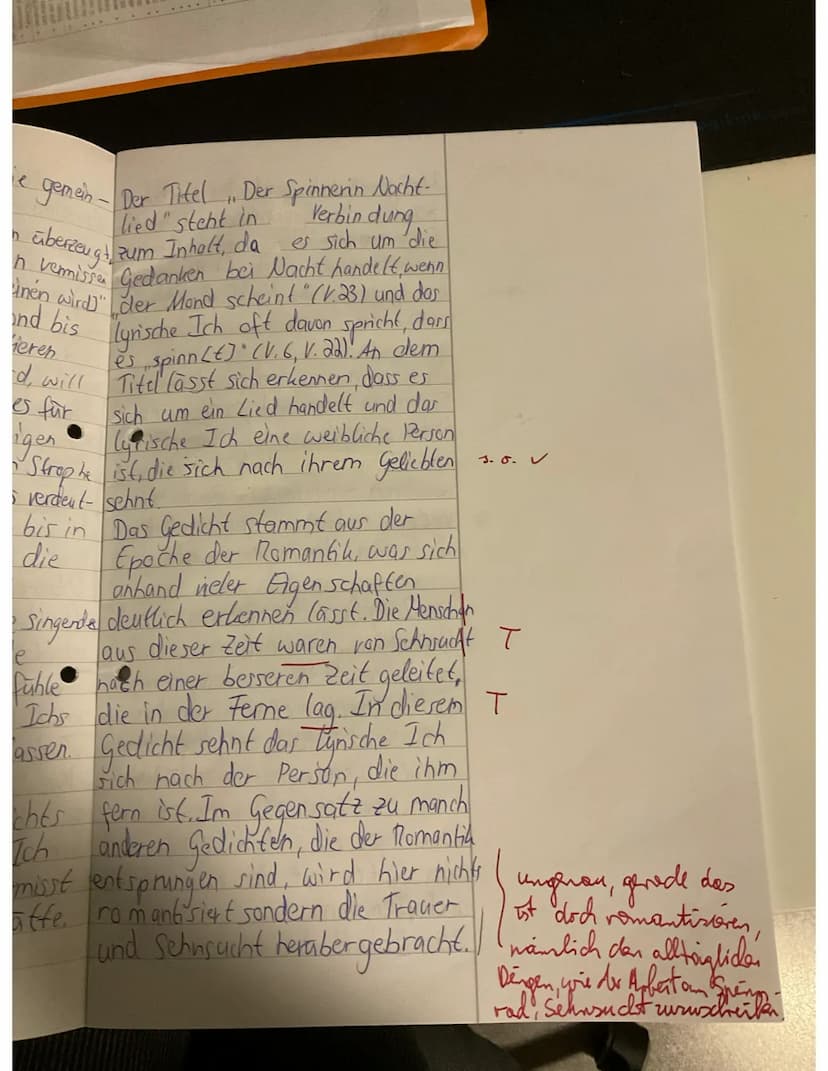 ie gemein-
n überzeugt,
n vermissen
einen wird)"
und bis
ieren
d, will
es für
igen
Strophe
s verdeut-
bis in
die
singende
e
fühle
Ichs
assen.
chts
Ich
misst
ätte.
Der Titel „Der Spinnerin Nacht-
lied" steht in Verbindung
zum Inhalt, da es sich um die
Gedanken bei Nacht handelt, wenn
„der Mond scheint" (V.23) und das
lyrische Ich oft davon spricht, dass
es „spinn[t]" (V.6, V.22). An dem
Titel lässt sich erkennen, dass es
sich um ein Lied handelt und das
lyrische Ich eine weibliche Person
ist, die sich nach ihrem Geliebten
sehnt.
Das Gedicht stammt aus der
Epoche der Romantik, was sich
anhand vieler Eigenschaften
deutlich erkennen lässt. Die Menschen
aus dieser Zeit waren von Sehnsucht
nach einer besseren Zeit geleitet,
die in der Ferne lag. In diesem
Gedicht sehnt das lyrische Ich
sich nach der Person, die ihm
fern ist. Im Gegensatz zu manch
anderen Gedichten, die der Romantik
entsprungen sind, wird hier nichts
romantisiert sondern die Trauer
und Sehnsucht herübergebracht.
s. o. ✓
T
T
ungenau, gerade das
ist doch romantisieren,
nämlich den alltäglichen
Dingen, wie der Arbeit am Spinn-
rad, Sehnsucht zuzuschreiben